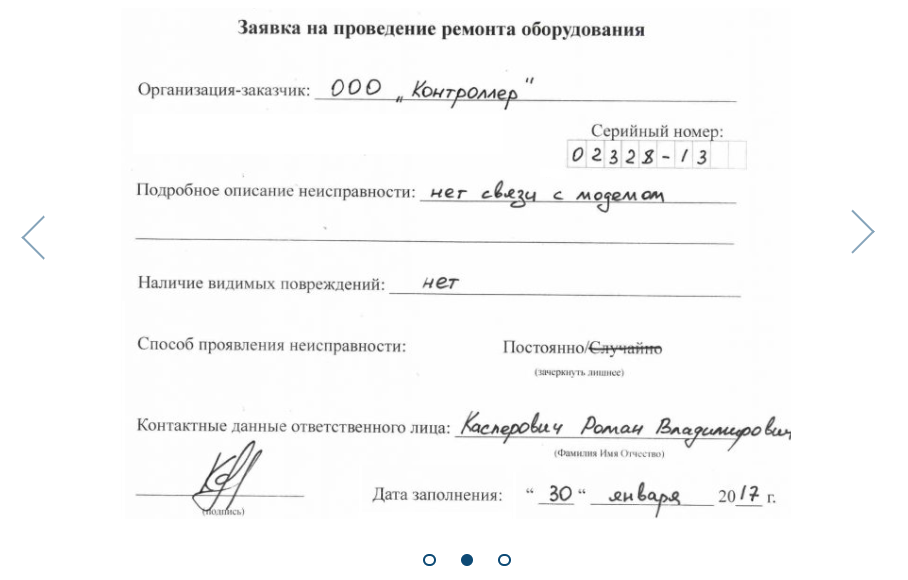 Заявка на проведение ремонта оборудования
Организация-заказчик: ООО „Контроллер"
Серийный номер:
02328-13
Подробное описание неисправности: нет связи с модемом
Наличие видимых повреждений: нет
Способ проявления неисправности: Постоянно/Случайно
(зачеркнуть лишнее)
Контактные данные ответственного лица: Касперович Роман Владимирович
(Фамилия Имя Отчество)
Дата заполнения: “ 30 “ января 2017 г.
(подпись)